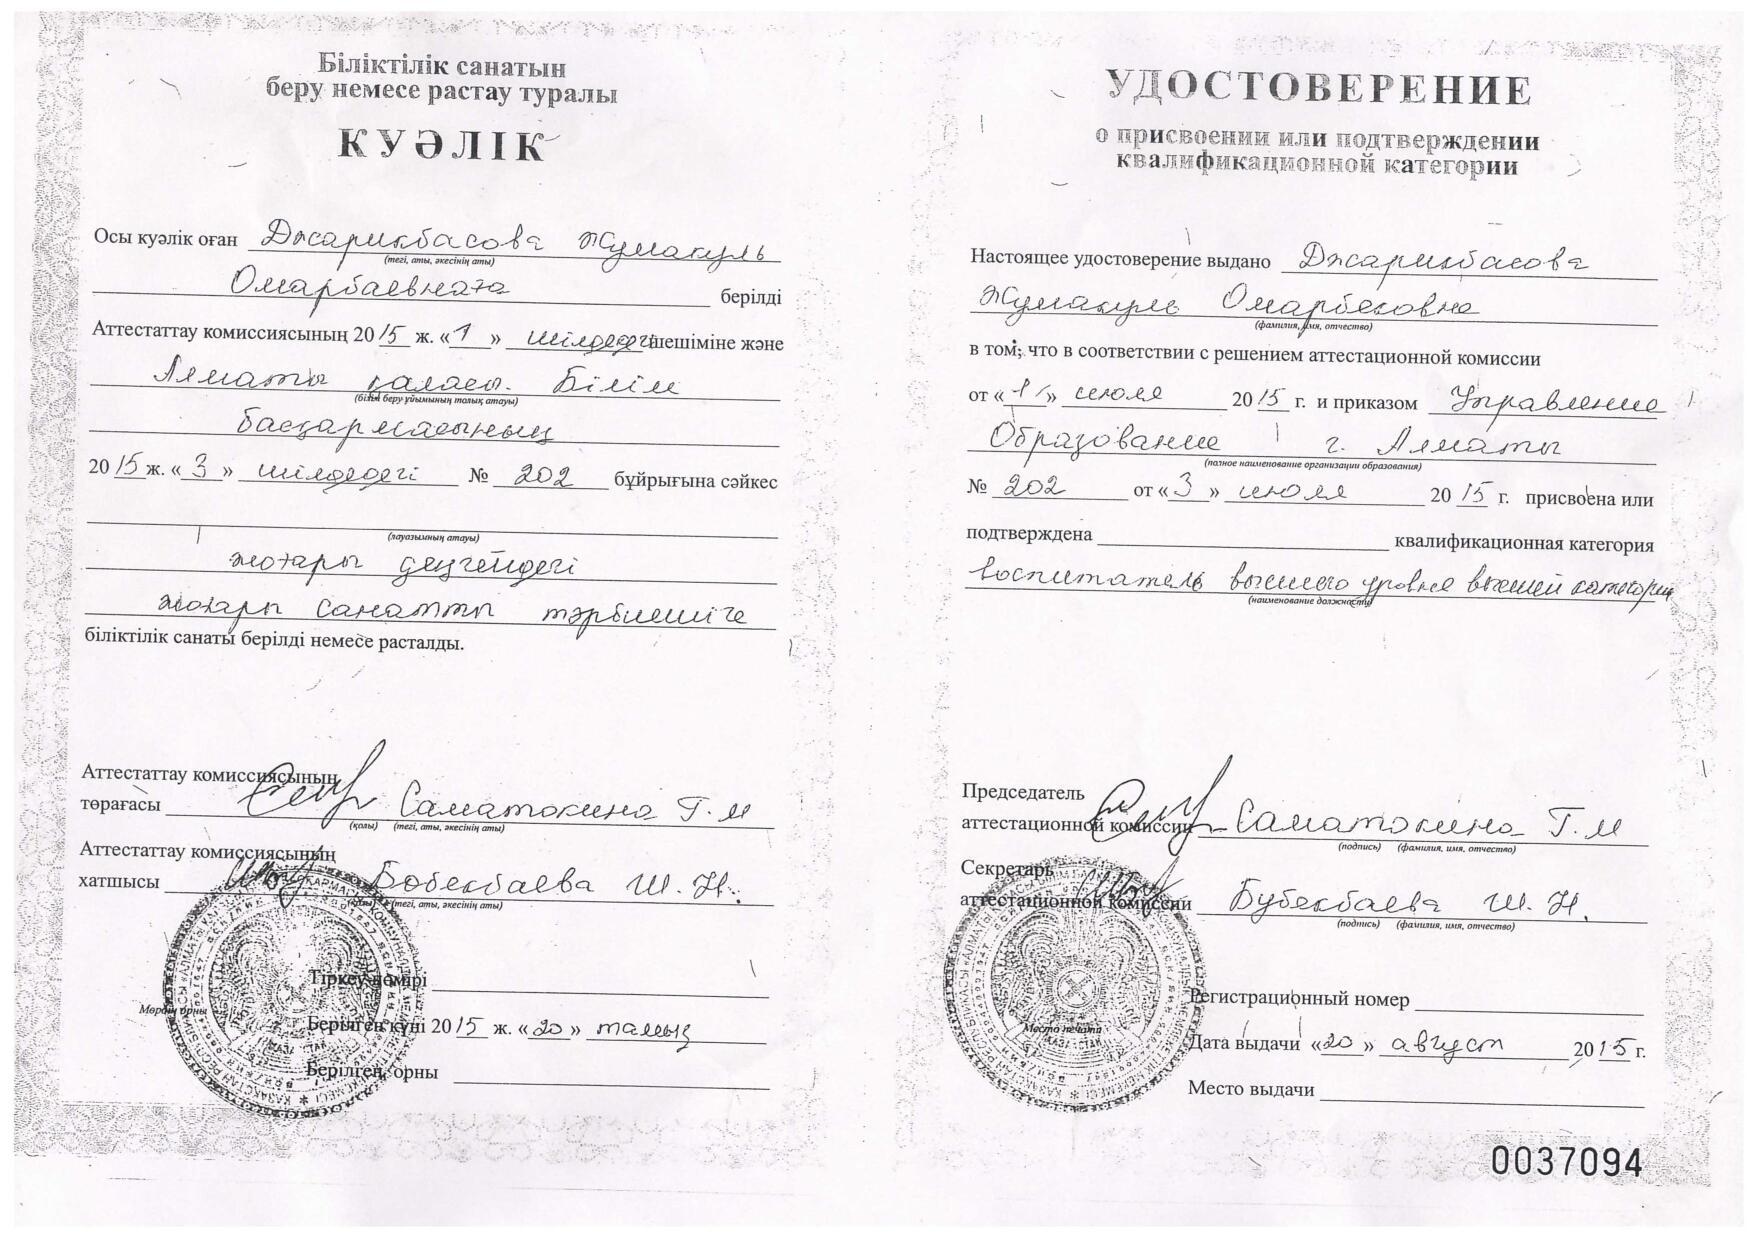 Біліктілік санатын
беру немесе растау туралы
КУӘЛІК
Осы куәлік оған Джарикбасова Жумакуль
(тегі, аты, әкесінің аты)
Омарбаевнаға берілді
Аттестаттау комиссиясының 2015 ж. «1» шілдедегі шешіміне және
Алматы қаласы. Білім
(білім беру ұйымының толық атауы)
басқармасының
2015 ж. «3» шілдедегі № 202 бұйрығына сәйкес
(лауазымның атауы)
жоғары деңгейдегі
жоғары санатты тәрбиешіге
біліктілік санаты берілді немесе расталды.
Аттестаттау комиссиясының
төрағасы Саматокина Г.М
(қолы) (тегі, аты, әкесінің аты)
Аттестаттау комиссиясының
хатшысы Бөбекбаева Ш.Н.
(қолы) (тегі, аты, әкесінің аты)
Тіркеу нөмірі
Мөрдің орны
Берілген күні 2015 ж. «20» тамыз
Берілген орны
УДОСТОВЕРЕНИЕ
о присвоении или подтверждении
квалификационной категории
Настоящее удостоверение выдано Джарикбасова
Жумакуль Омарбековна
(фамилия, имя, отчество)
в том, что в соответствии с решением аттестационной комиссии
от «1» июля 2015 г. и приказом Управление
Образование г. Алматы
(полное наименование организации образования)
№ 202 от «3» июля 2015 г. присвоена или
подтверждена квалификационная категория
воспитатель высшего уровня высшей категории
(наименование должности)
Председатель
аттестационной комиссии Саматокина Г.М
(подпись) (фамилия, имя, отчество)
Секретарь
аттестационной комиссии Бубекбаева Ш.Н.
(подпись) (фамилия, имя, отчество)
Регистрационный номер
Место печати
Дата выдачи «20» август 2015 г.
Место выдачи
0037094